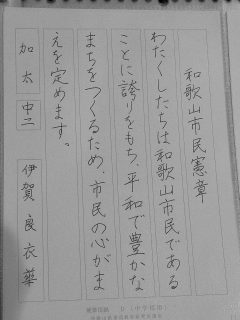 和歌山市民憲章
わたくしたちは和歌山市民である
ことに誇りをもち、平和で豊かな
まちをつくるため、市民の心がま
えを定めます。
加太 中二 伊賀 良衣華